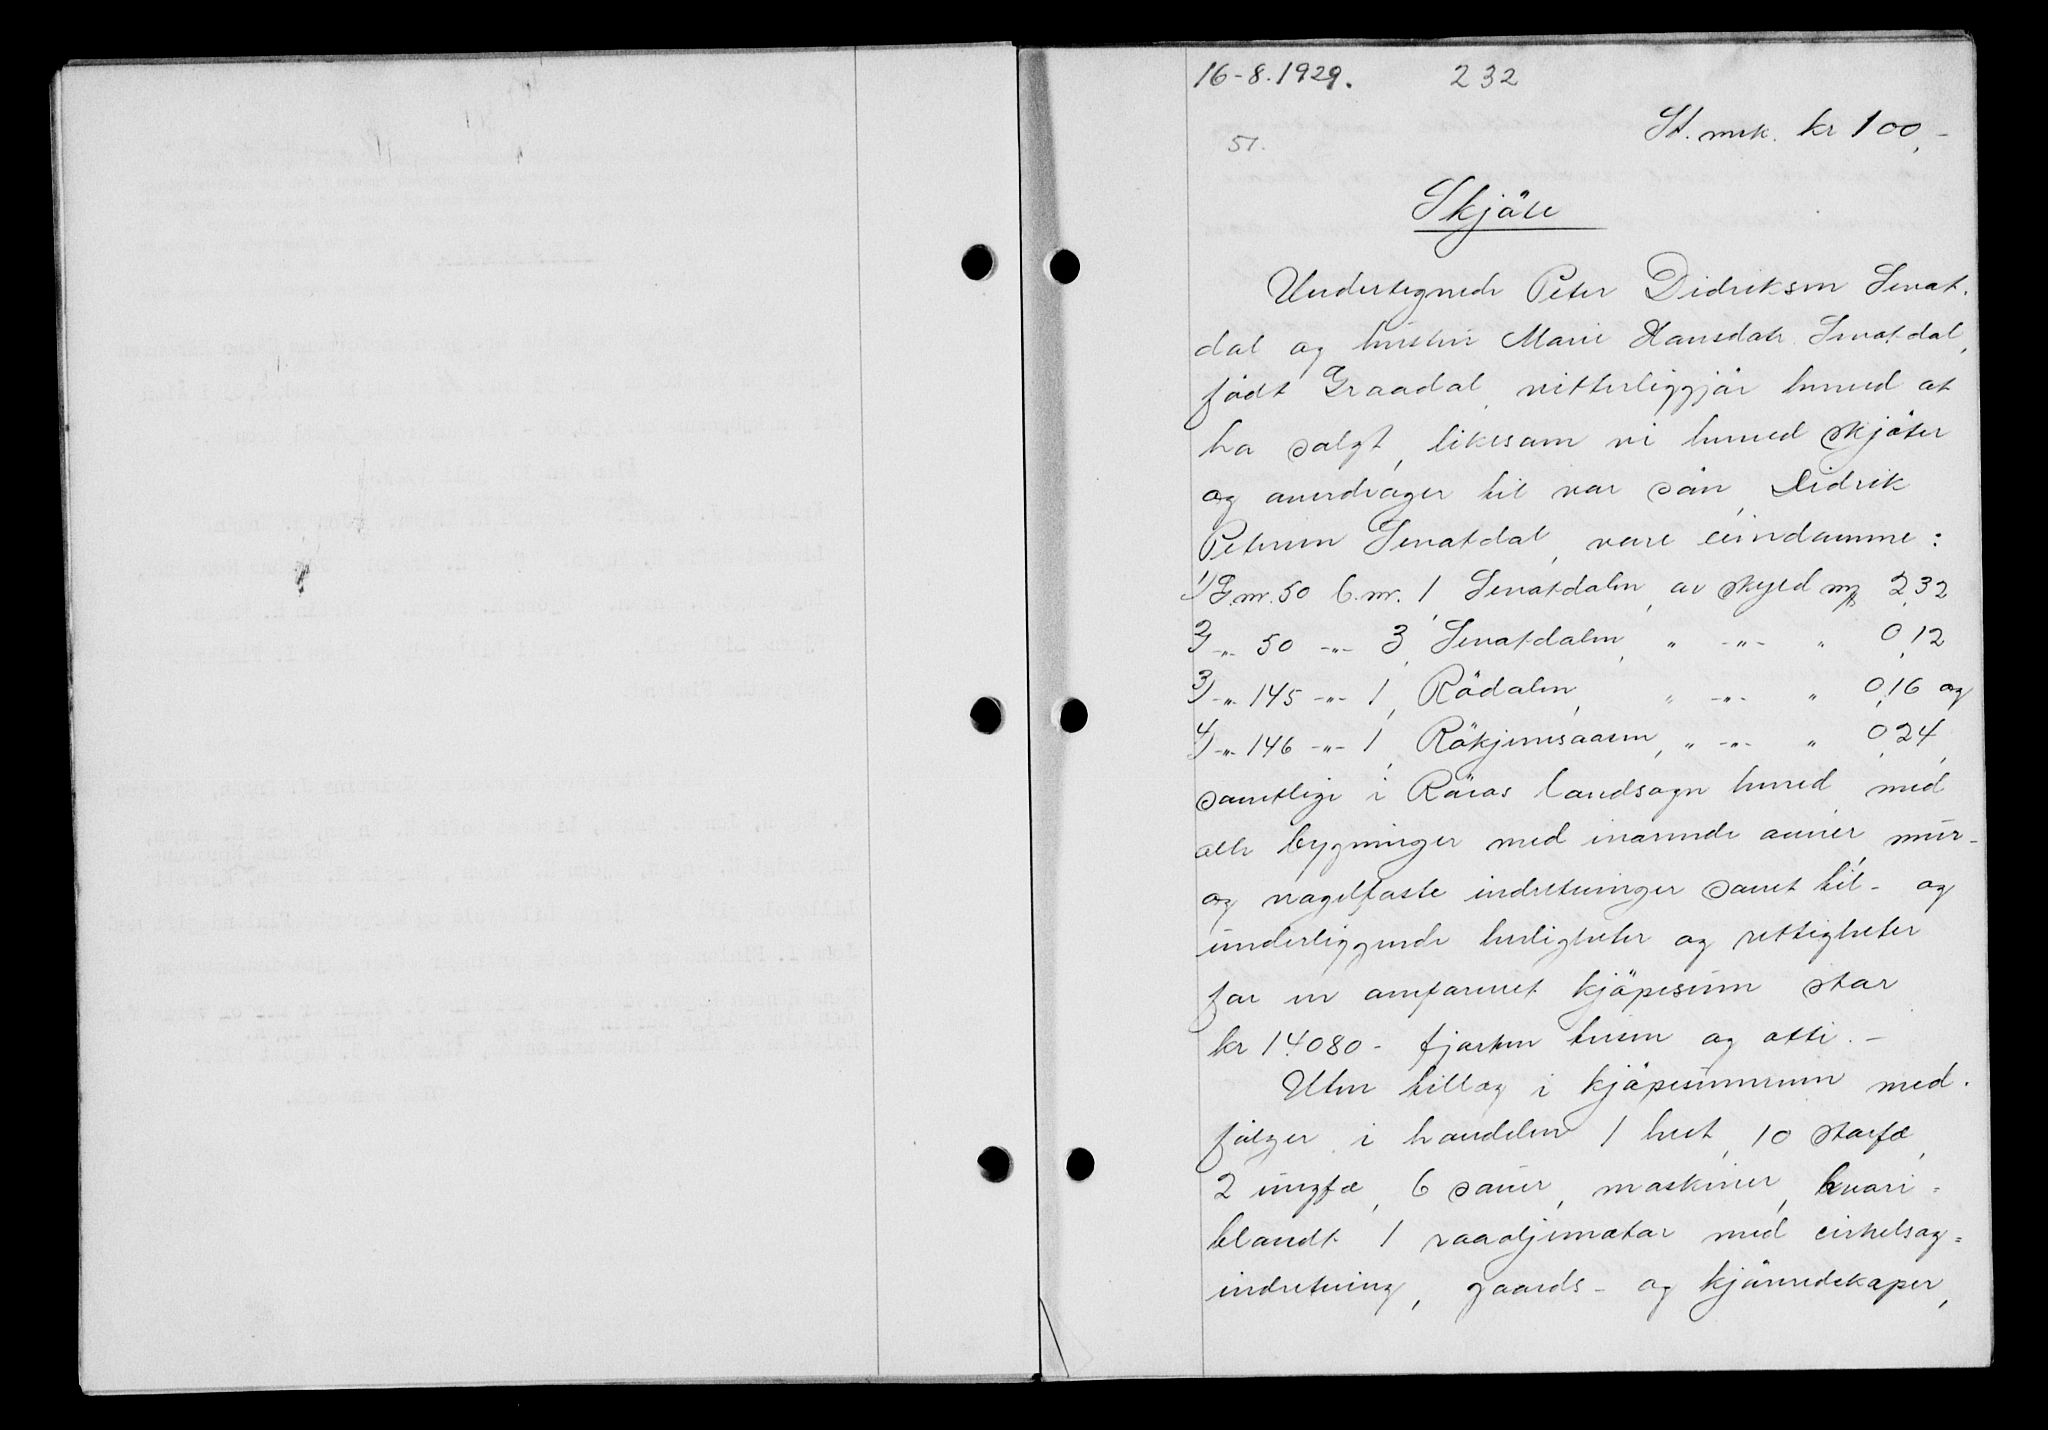 16-8.1929. 232
St. mrk. kr 100,-
51.
Skjöte
Undertegnede Peter Didriksen Sevat-
dal og hustru Marie Hansdatr. Sevatdal,
födt Graadal, vitterliggjör herved at
ha solgt, likesom vi herved skjöter
og overdrager til vor sön, Didrik
Petersen Sevatdal, vore eiendomme:
1) G.nr. 50 b.nr. 1, Sevatdalen, av skyld mk 2,32
2) -"- 50 -"- 3, Sevatdalen, " -"- " 0,12
3) -"- 145 -"- 1, Rödalen, " -"- " 0,16 og
4) -"- 146 -"- 1, Rökjemsaasen, " -"- " 0,24,
samtlige i Röros landsogn herred, med
alle bygninger med ivaerende ovner, mur-
og nagelfaste indretninger samt til- og
underliggende herligheter og rettigheter
for en omforenet kjöpesum stor
kr 14.080 - fjorten tusen og otti. -
Uten tillæg i kjöpesummen med-
fölger i handelen 1 hest, 10 storfæ,
2 ungfæ, 6 sauer, maskiner, hvori-
blandt 1 raaoljemotor med cirkelsag-
indretning, gaards- og kjöreredskaper,